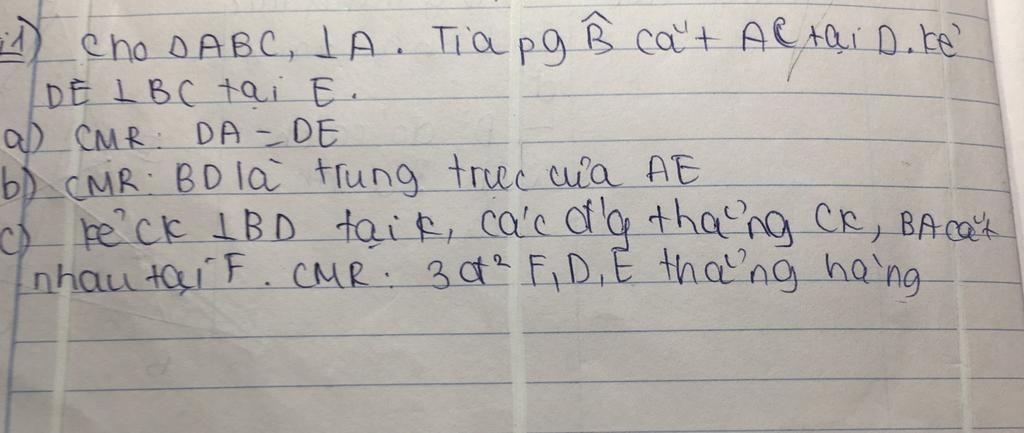 1) Cho ΔABC, ⊥A. Tia pg B̂ cắt AC tại D. kẻ
DE ⊥BC tại E.
a) CMR: DA = DE
b) CMR: BD là trung trực của AE
c) kẻ CK ⊥BD tại K, các đ'g thẳng CK, BA cắt
nhau tại F. CMR: 3 đ² F, D, E thẳng hàng